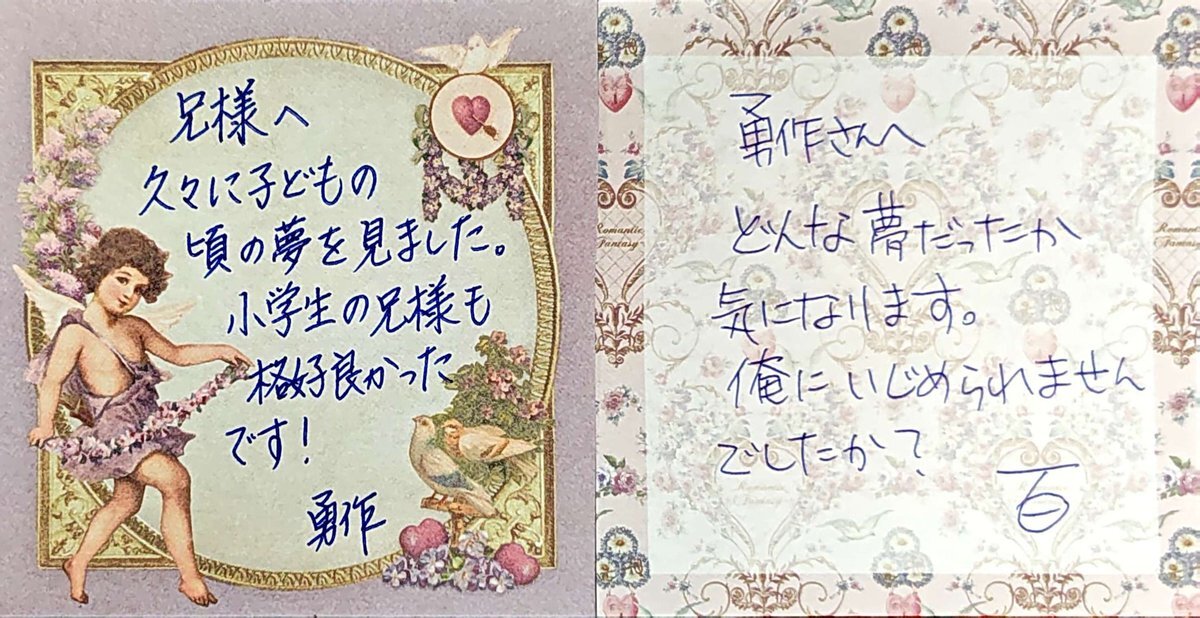 兄様へ
久々に子どもの
頃の夢を見ました。
小学生の兄様も
格好良かった
です！
勇作
勇作さんへ
どんな夢だったか
気になります。
俺にいじめられません
でしたか？
百
Romantic
Fantasy
Romantic
Fantasy